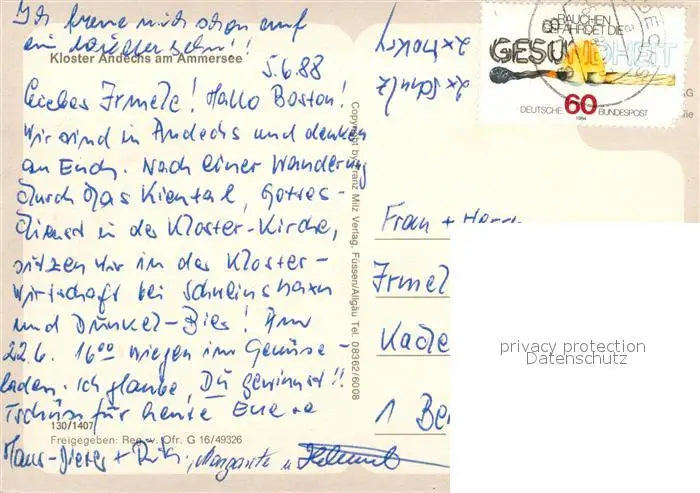 Ich freue mich schon auf
ein Wiedersehn!!
Kloster Andechs am Ammersee
5.6.88
Liebes Irmele! Hallo Boston!
Wir sind in Andechs und denken
an Euch. Nach einer Wanderung
durch das Kiental, Gottes-
dienst in der Kloster-Kirche,
sitzen wir in der Kloster-
wirtschaft bei Schweinshaxn
und Dunkel-Bier! Am
22.6. 16⁰⁰ wiegen im Gemüse-
laden. Ich glaube, Du gewinnst!!
Tschüss für heute Euere
130/1407
Freigegeben: Reg. v. Obr. G 16/49326
Hans-Dieter + Margarete u. Helmut
Copyright by Franz Milz Verlag, Füssen/Allgäu Tel. 08362/6008
2x
2x
RAUCHEN
GEFÄHRDET DIE
GESUNDHEIT
DEUTSCHE 60 BUNDESPOST
1984
Frau + Herrn
Irmel
Kade
1 Be
privacy protection
Datenschutz